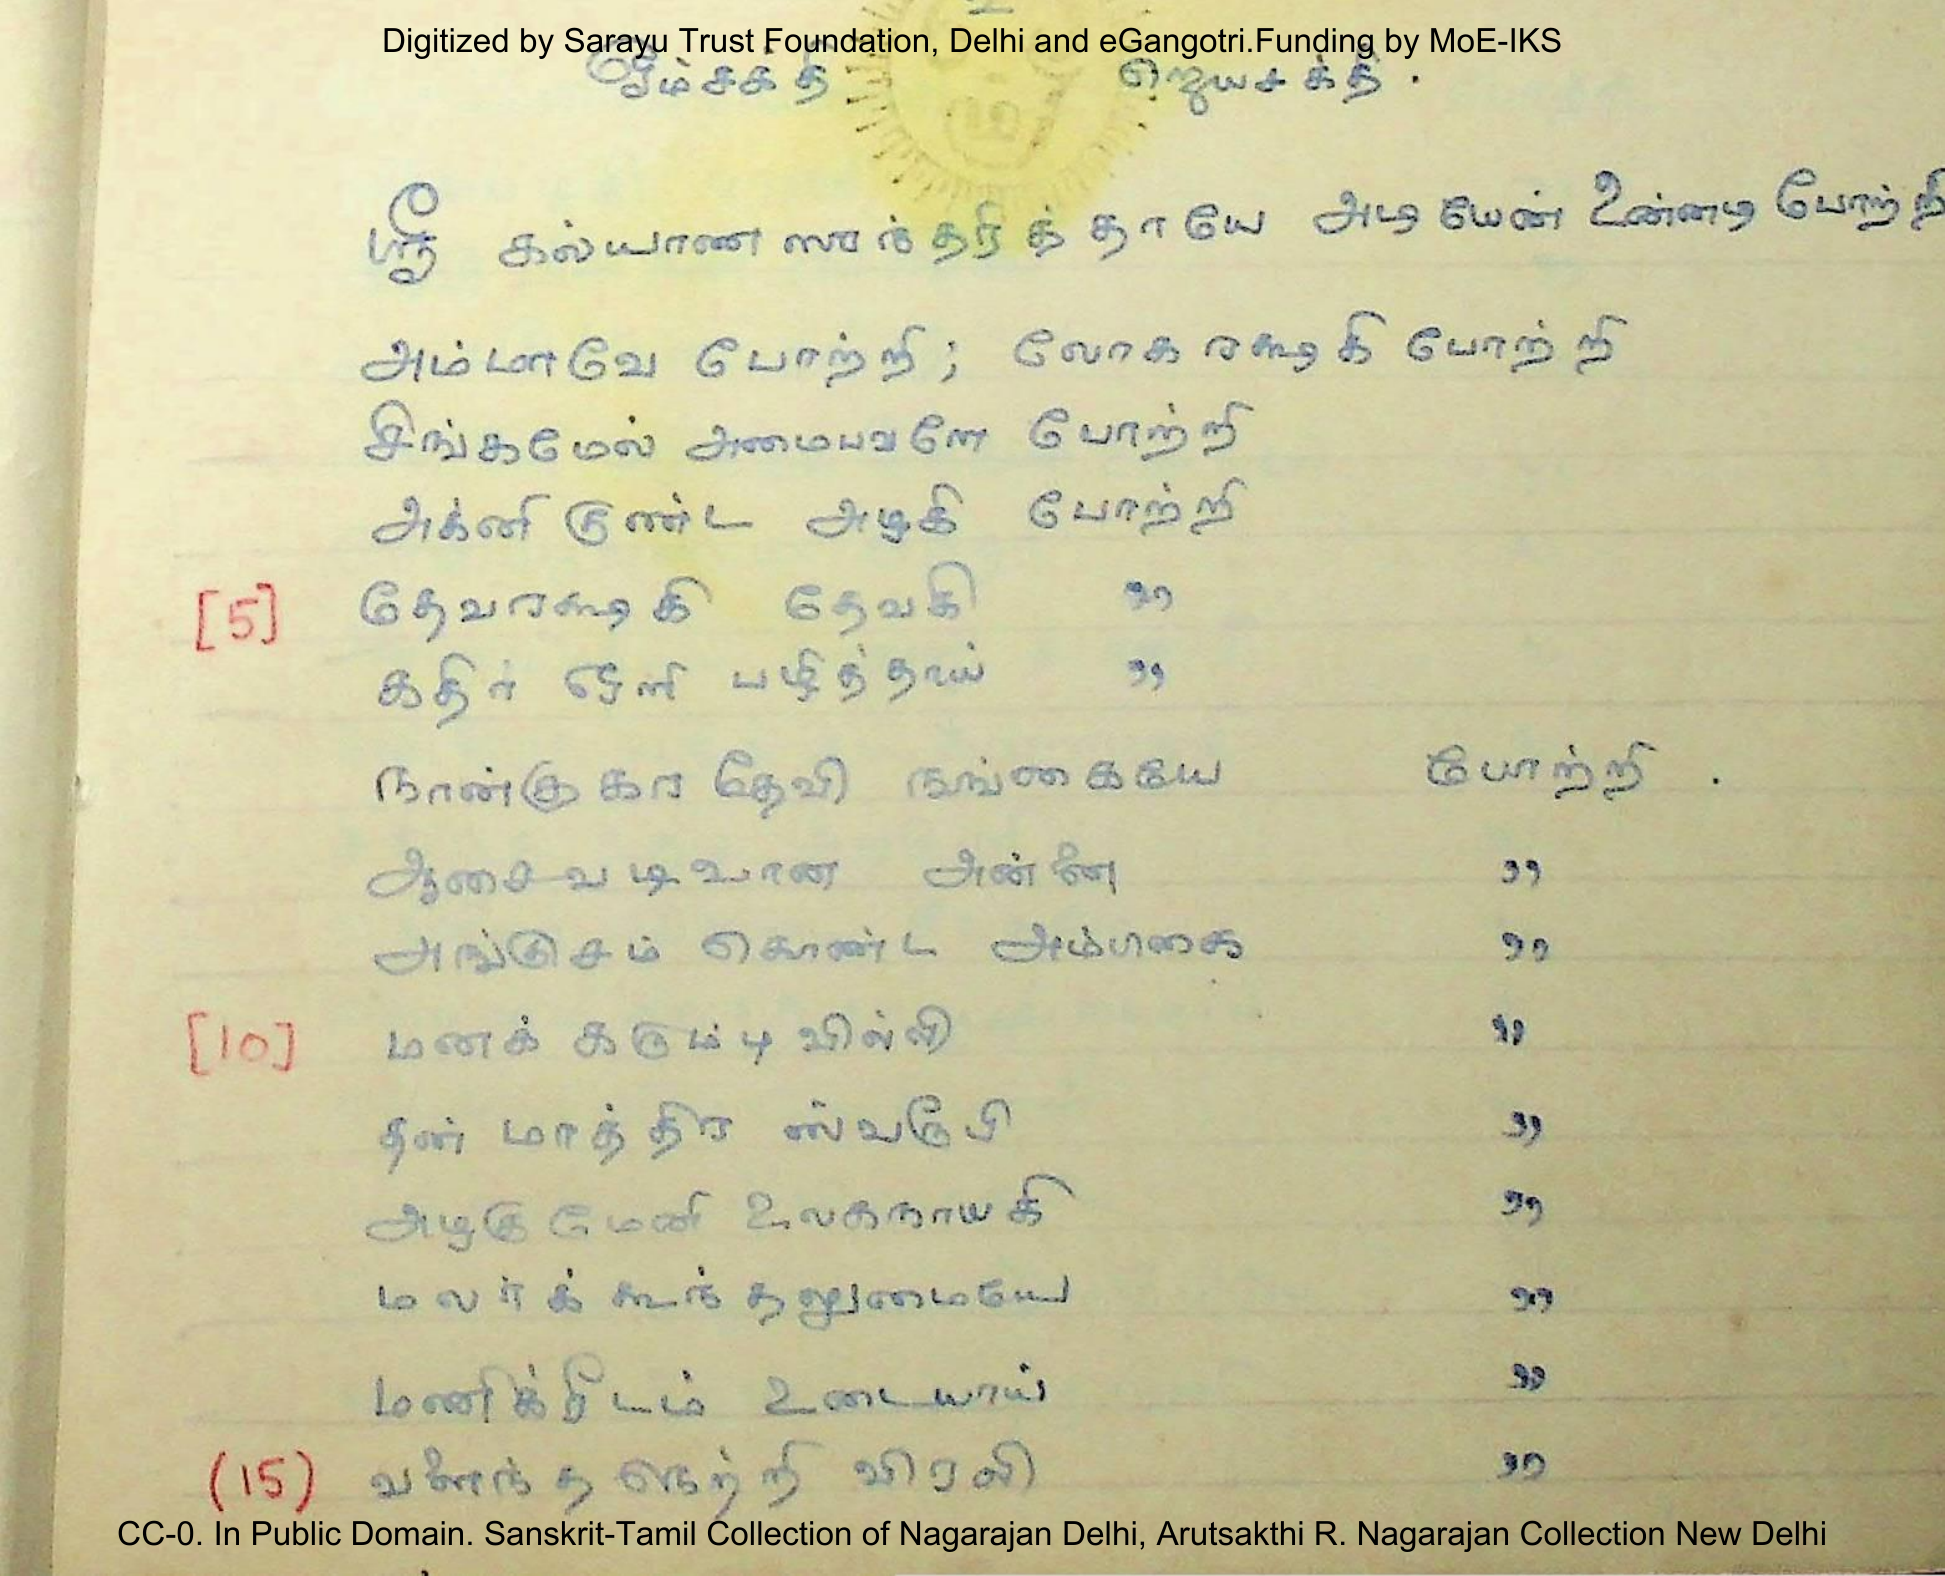 Digitized by Sarayu Trust Foundation, Delhi and eGangotri.Funding by MoE-IKS
ஓம்சக்தி ஜெயசக்தி .
ஸ்ரீ கல்யாணஸுந்தரித்தாயே அடியேன் உன்னடி போற்றி
அம்மாவே போற்றி; லோகரக்ஷகி போற்றி
சிங்கமேல் அமைபவளே போற்றி
அக்னி குண்ட அழகி போற்றி
[5] தேவரக்ஷகி தேவகி "
கதிர் ஒளி பழித்தாய் "
நான்குகர தேவி நங்கையே போற்றி .
ஆசைவடிவான அன்னை "
அங்குசம் கொண்ட அம்பகை "
[10] மனக் கரும்பு வில்லி "
தன் மாத்திர ஸ்வரூபி "
அழகுமேனி உலகநாயகி "
மலர்க் கூந்தலுமையே "
மணிக்ரீடம் உடையாய் "
(15) வளைந்த நெற்றி விரலி "
CC-0. In Public Domain. Sanskrit-Tamil Collection of Nagarajan Delhi, Arutsakthi R. Nagarajan Collection New Delhi